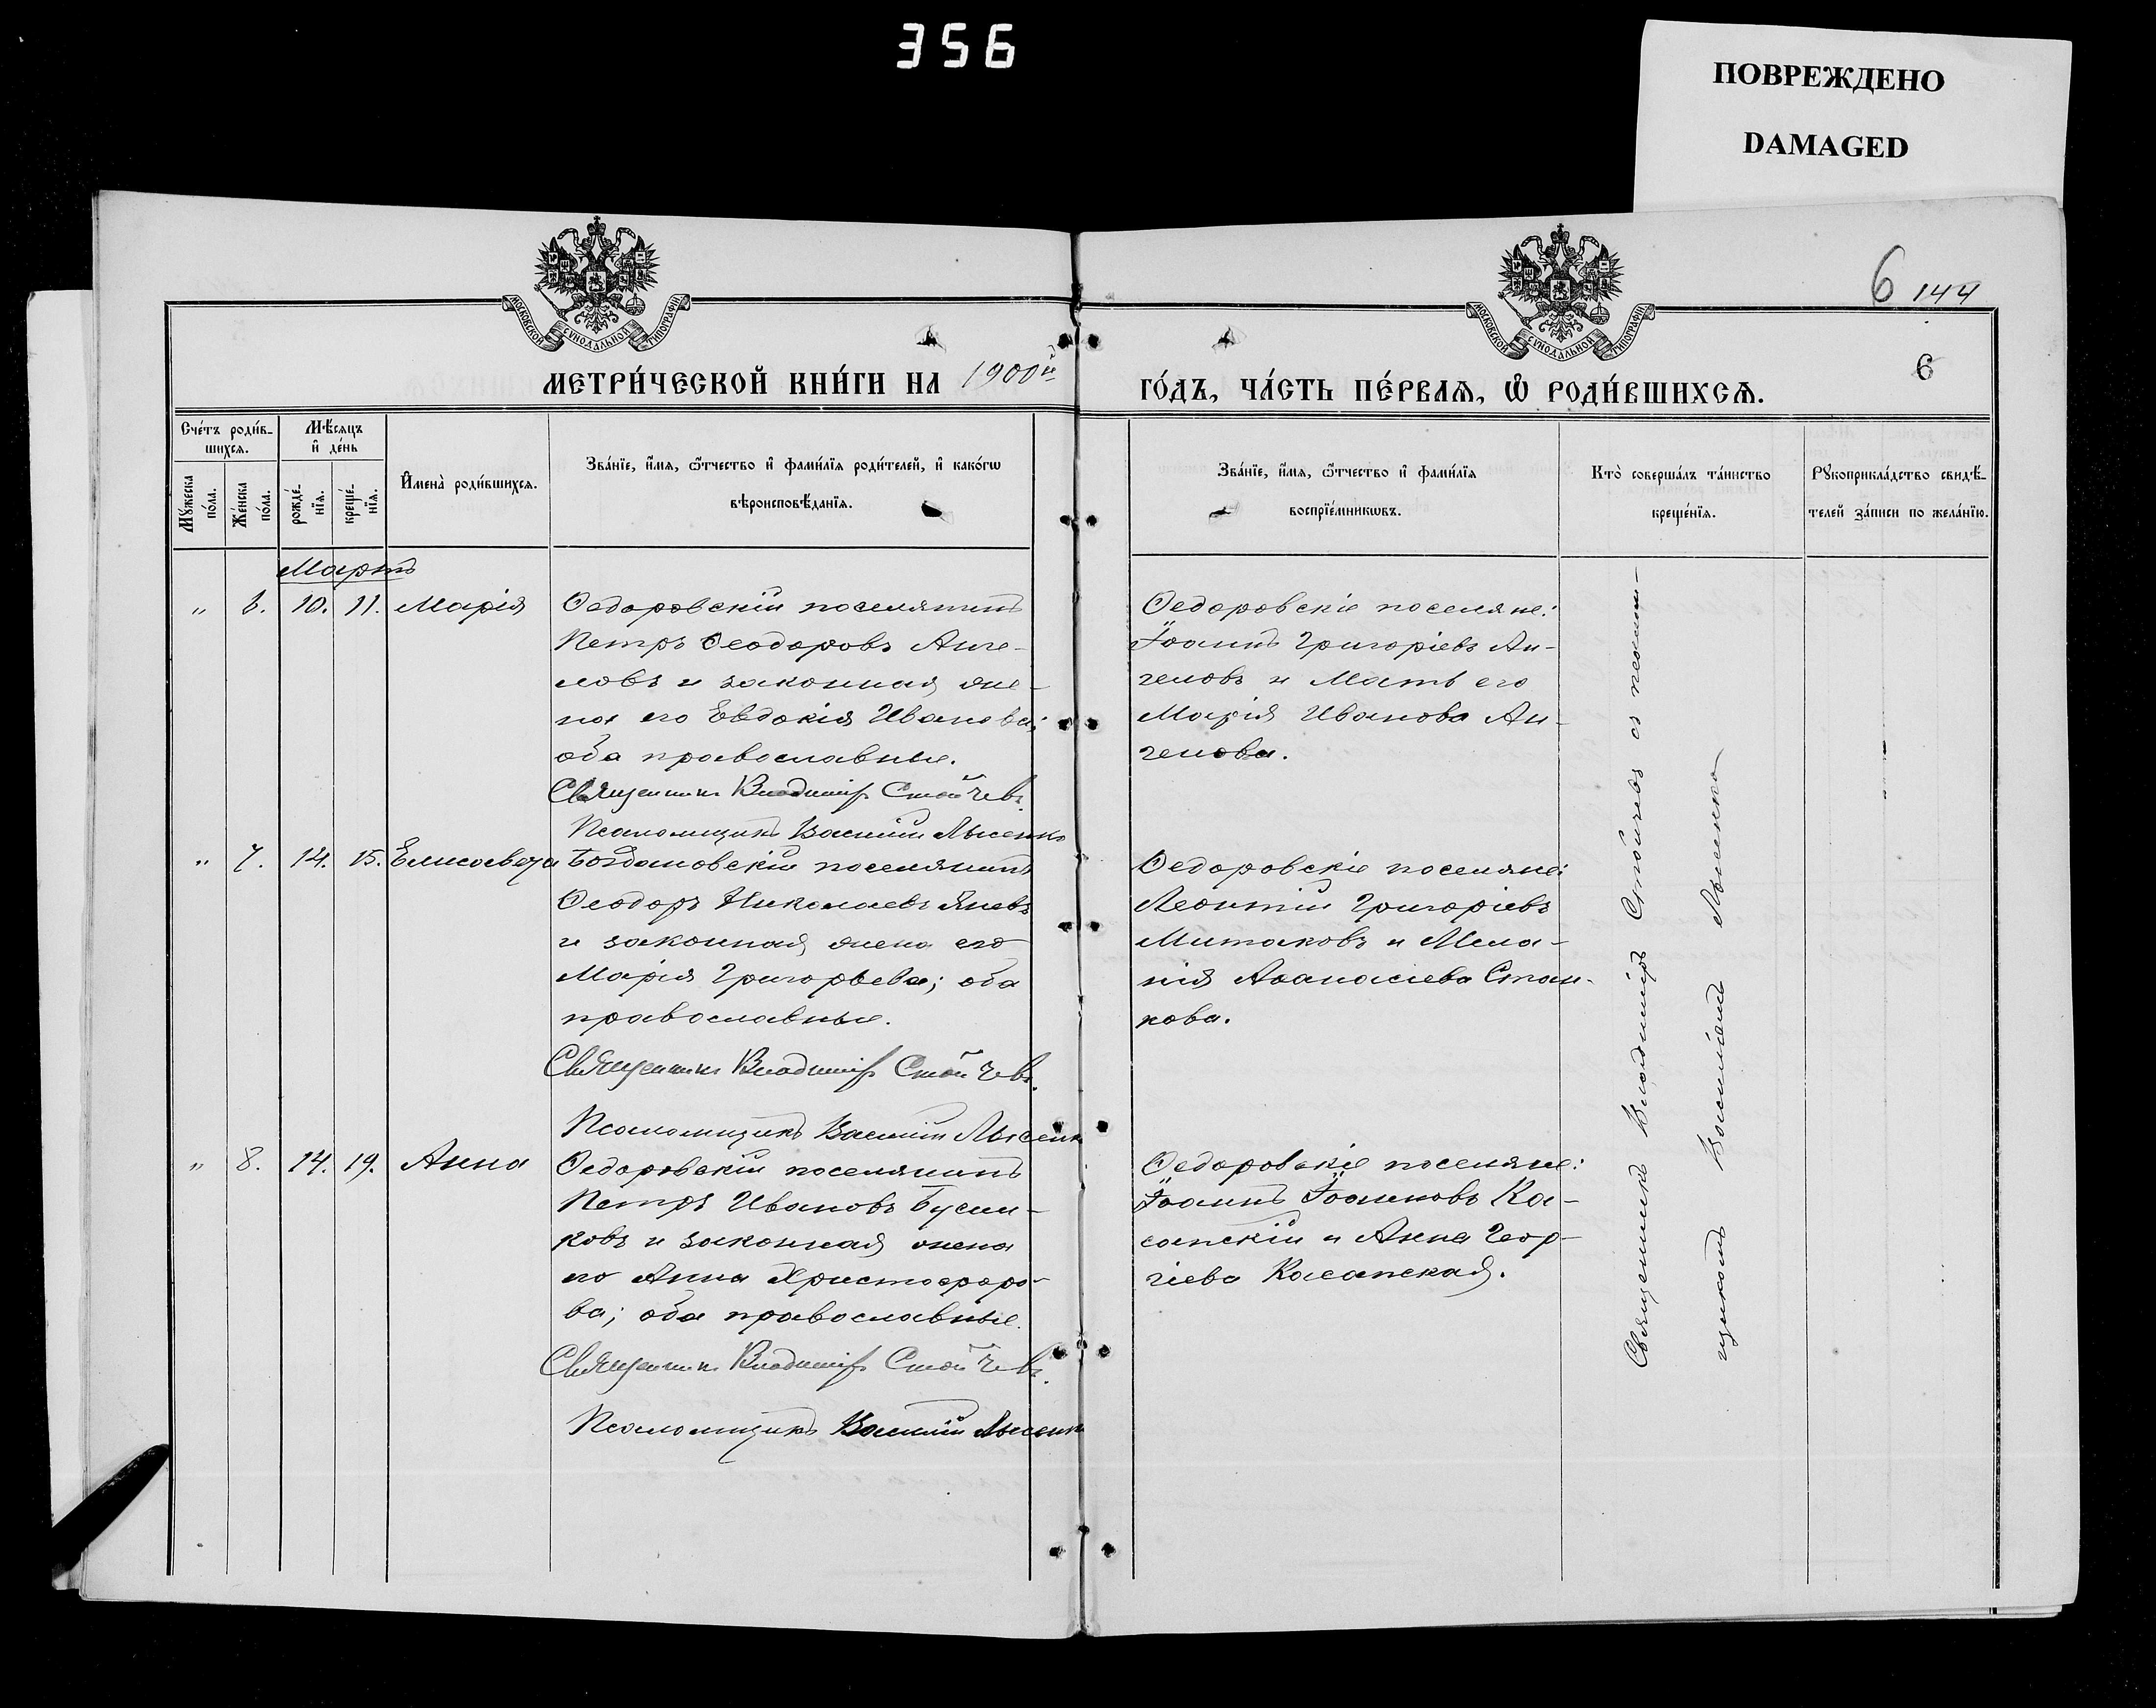 356
ПОВРЕЖДЕНО
DAMAGED
6 144
6
МОСКОВСКОЙ СѴНОДАЛЬНОЙ ТИПОГРАФІИ
МОСКОВСКОЙ СѴНОДАЛЬНОЙ ТИПОГРАФІИ
МЕТРИ́ЧЕСКОЙ КНИ́ГИ НА 1900й
ГО́ДЪ, ЧА́СТЬ ПЕ́РВАѦ, Ѽ РОДИ́ВШИХСѦ.
Сче́тъ роди́в-
шихсѧ.
Мꙋ́жеска
по́ла.
Же́нска
по́ла.
Мѣ́сѧцъ
и҆ де́нь
рожде́-
нїѧ.
креще́-
нїѧ.
И҆мена̀ роди́вшихсѧ.
Зва́нїе, и҆́мѧ, ѻ҆́тчество и҆ фами́лїѧ роди́телей, и҆ како́гѡ
вѣроисповѣ́данїѧ.
Зва́нїе, и҆́мѧ, ѻ҆́тчество и҆ фами́лїѧ
воспрїе́мникѡвъ.
Кто̀ соверша́лъ та́инство
креще́нїѧ.
Рꙋкоприкла́дство свидѣ́-
телей за́писи по жела́нїю.
Мартъ
„ 6. 10. 11. Марія
Ѳедоровскій поселянинъ
Петръ Ѳеодоровъ Анге-
ловъ и законная же-
на его Евдокія Иванова;
оба православные.
Священникъ Владиміръ Стойчевъ.
Псаломщикъ Василій Лысенко
Ѳедоровскіе поселяне:
Іоаннъ Григоріевъ Ан-
геловъ и Мать его
Марія Иванова Ан-
гелова.
„ 7. 14. 15. Елисавета
Богдановскій поселянинъ
Ѳеодоръ Николаевъ Яневъ
и законная жена его
Марія Григорьева; оба
православные.
Священникъ Владиміръ Стойчевъ.
Псаломщикъ Василій Лысенк
Ѳедоровскіе поселяне:
Леонтій Григоріевъ
Митаковъ и Мела-
нія Аѳанасіева Стан-
кова.
„ 8. 14. 19. Анна
Ѳедоровскій поселянинъ
Петръ Ивановъ Бусин-
ковъ и законная жена
его Анна Христофоро-
ва; оба православные.
Священникъ Владиміръ Стойчевъ.
Псаломщикъ Василій Лысенк
Ѳедоровскіе поселяне:
Іоаннъ Іоанновъ Ка-
сапскій и Анна Геор-
гіева Касапская.
Священникъ Владиміръ Стойчевъ съ псалом-
щикомъ Василіемъ Лысенко